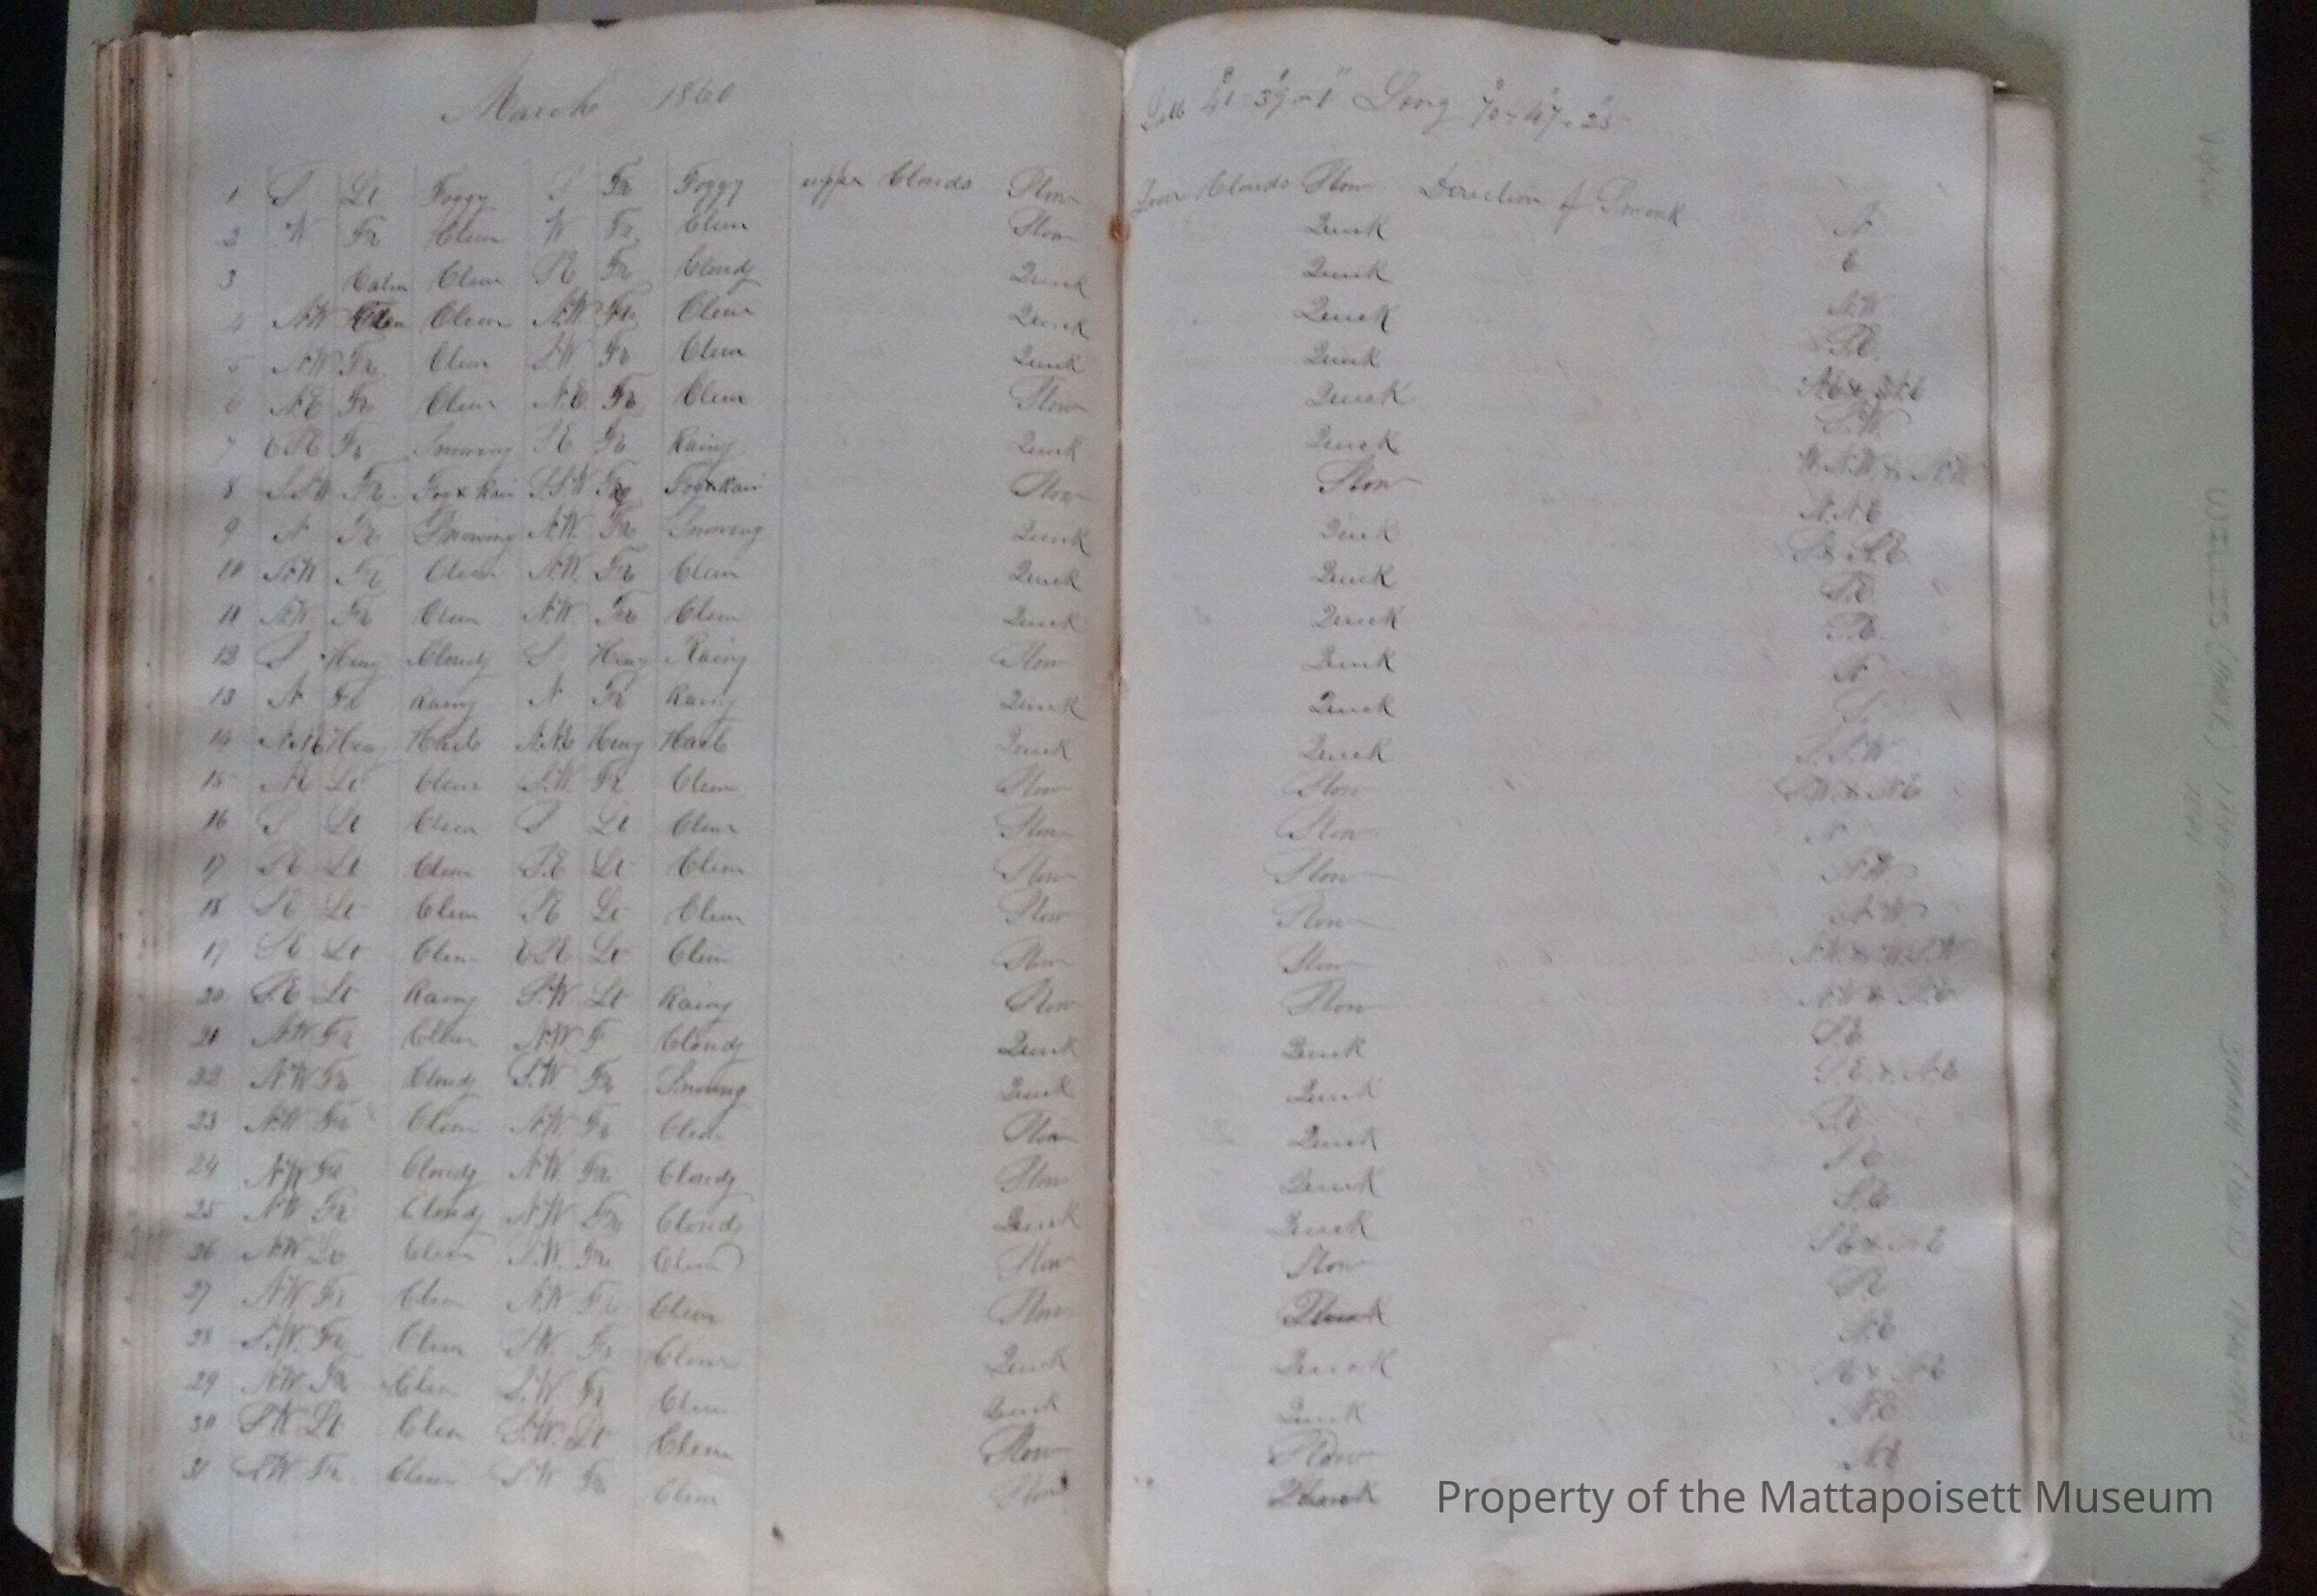 March 1860 Latt 41°-39'-1" Long 70-47-25
1 S Lt Foggy S Fr Foggy upper Clouds Slow Low Clouds Slow Direction of Smook N
2 W Fr Clear W Fr Clear Slow Quick E
3 Calm Clear SE Fr Cloudy Quick Quick N.W.
4 N.W Clear N.W. Fr Clear Quick Quick S.E.
5 N.W Fr Clear S.W Fr Clear Quick Quick
6 N.E Fr Clear N.E. Fr Clear Slow Quick S.W.
7 ESE Fr Snowing SE Fr Rainy Quick Quick W.N.W. & N.W
8 S.S.W Fr Fog & Rain S.S.W Fr Fog & Rain Slow Slow N.N.E
9 N Fr Snowing N.W. Fr Snowing Quick Quick S & S.E.
10 N.W Fr Clear N.W. Fr Clear Quick Quick S.E
11 N.W. Fr Clear N.W. Fr Clear Quick Quick S.E.
12 S Hevy Cloudy S Hevy Rainy Slow Quick N
13 N Fr Rainy N Fr Rainy Quick Quick S.
14 N.N.E Hevy Hail N.N.E Hevy Hail Quick Quick S.S.W
15 NE Lt Clear S.W. Fr Clear Slow Slow S.W. & N.E
16 S Lt Clear S Lt Clear Slow Slow N
17 SE Lt Clear S.E Lt Clear Slow Slow N.W.
18 SE Lt Clear SE Lt Clear Slow Slow N.W.
19 SE Lt Clear ESE Lt Clear Slow Slow N.W. & W.N.W
20 SE Lt Rainy S.W. Lt Rainy Slow Slow N.W & N.E
21 N.W Fr Clear N.W F Cloudy Quick Quick S.E
22 N.W Fr Cloudy S.W. Fr Snowing Quick Quick S.E. & N.E
23 N.W Fr Clear N.W. Fr Clear Slow Quick SE
24 N.W Fr Cloudy N.W. Fr Cloudy Slow Quick SE
25 N.W Fr Cloudy N.W Fr Cloudy Quick Quick S.E
26 N.W Lt Clear S.W. Fr Clear Slow Slow SE & N.E
27 N.W Fr Clear N.W Fr Clear Slow SE
28 S.W. Fr Clear S.W. Fr Clear Quick Quick N.E
29 N.W. Fr Clear S.W Fr Clear Quick Quick SE & N.E
30 S.W. Lt Clear S.W. Lt Clear Slow Slow N.E
31 S.W Fr Clear S.W Fr Clear Slow N.E
Property of the Mattapoisett Museum